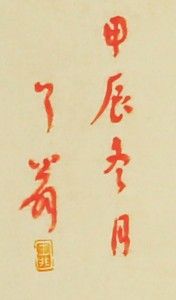 甲辰冬月
了翁